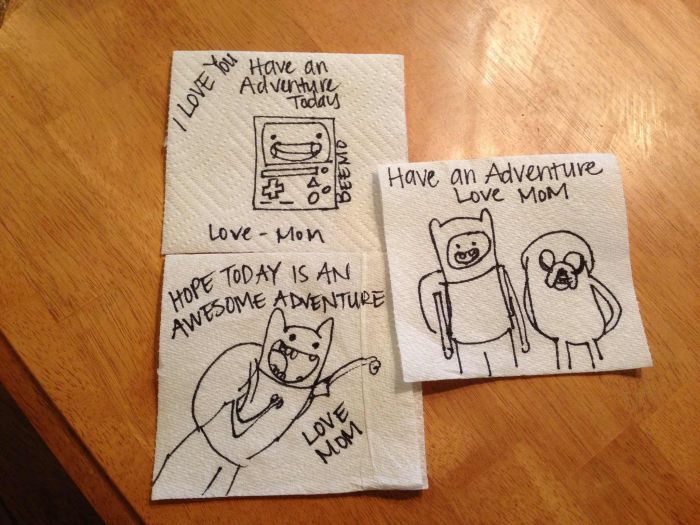 I LOVE YOU
Have an
Adventure
Today
BEEMO
Love - Mom
Have an Adventure
Love Mom
HOPE TODAY IS AN
AWESOME ADVENTURE
LOVE
MOM